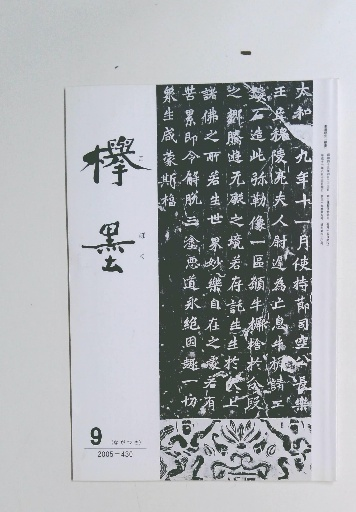 太和十九年十一月使持節司空公長樂
王丘穆陵亮夫人尉遲為亡息牛橛請工
鏤石造此弥勒像一區願牛橛捨於分段
之鄉騰遊无礙之境若存託生生於天上
諸佛之所若生世界妙樂自在之處若有
苦累即令解脱三塗惡道永絶因趣一切
衆生咸蒙斯福
欅墨
ぼく
9 (ながつき)
2005—430